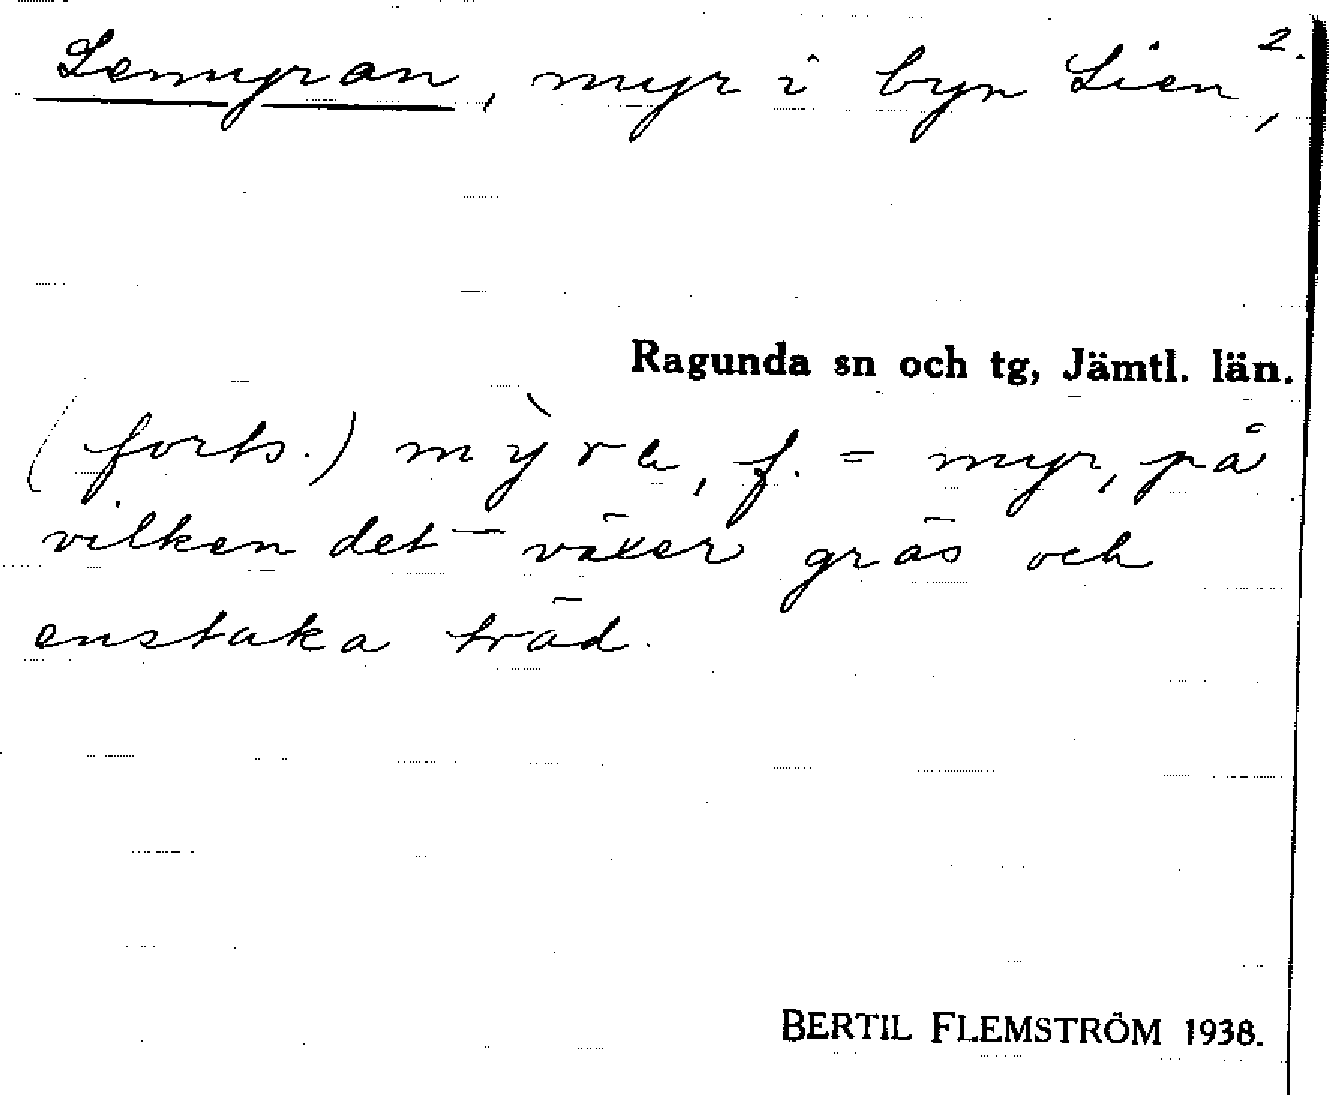 2.
Lemyran, myr i byn Lien,
Ragunda sn och tg, Jämtl. län.
(forts.) , f. = myr, på
vilken det växer gräs och
enstaka träd.
BERTIL FLEMSTRÖM 1938.